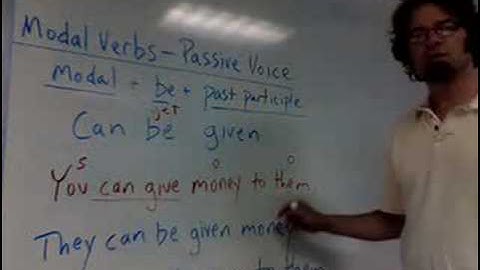 Modal Verbs - Passive Voice
Modal + be + past participle
get
Can be given
S O O
You can give money to them
They can be given money
to them